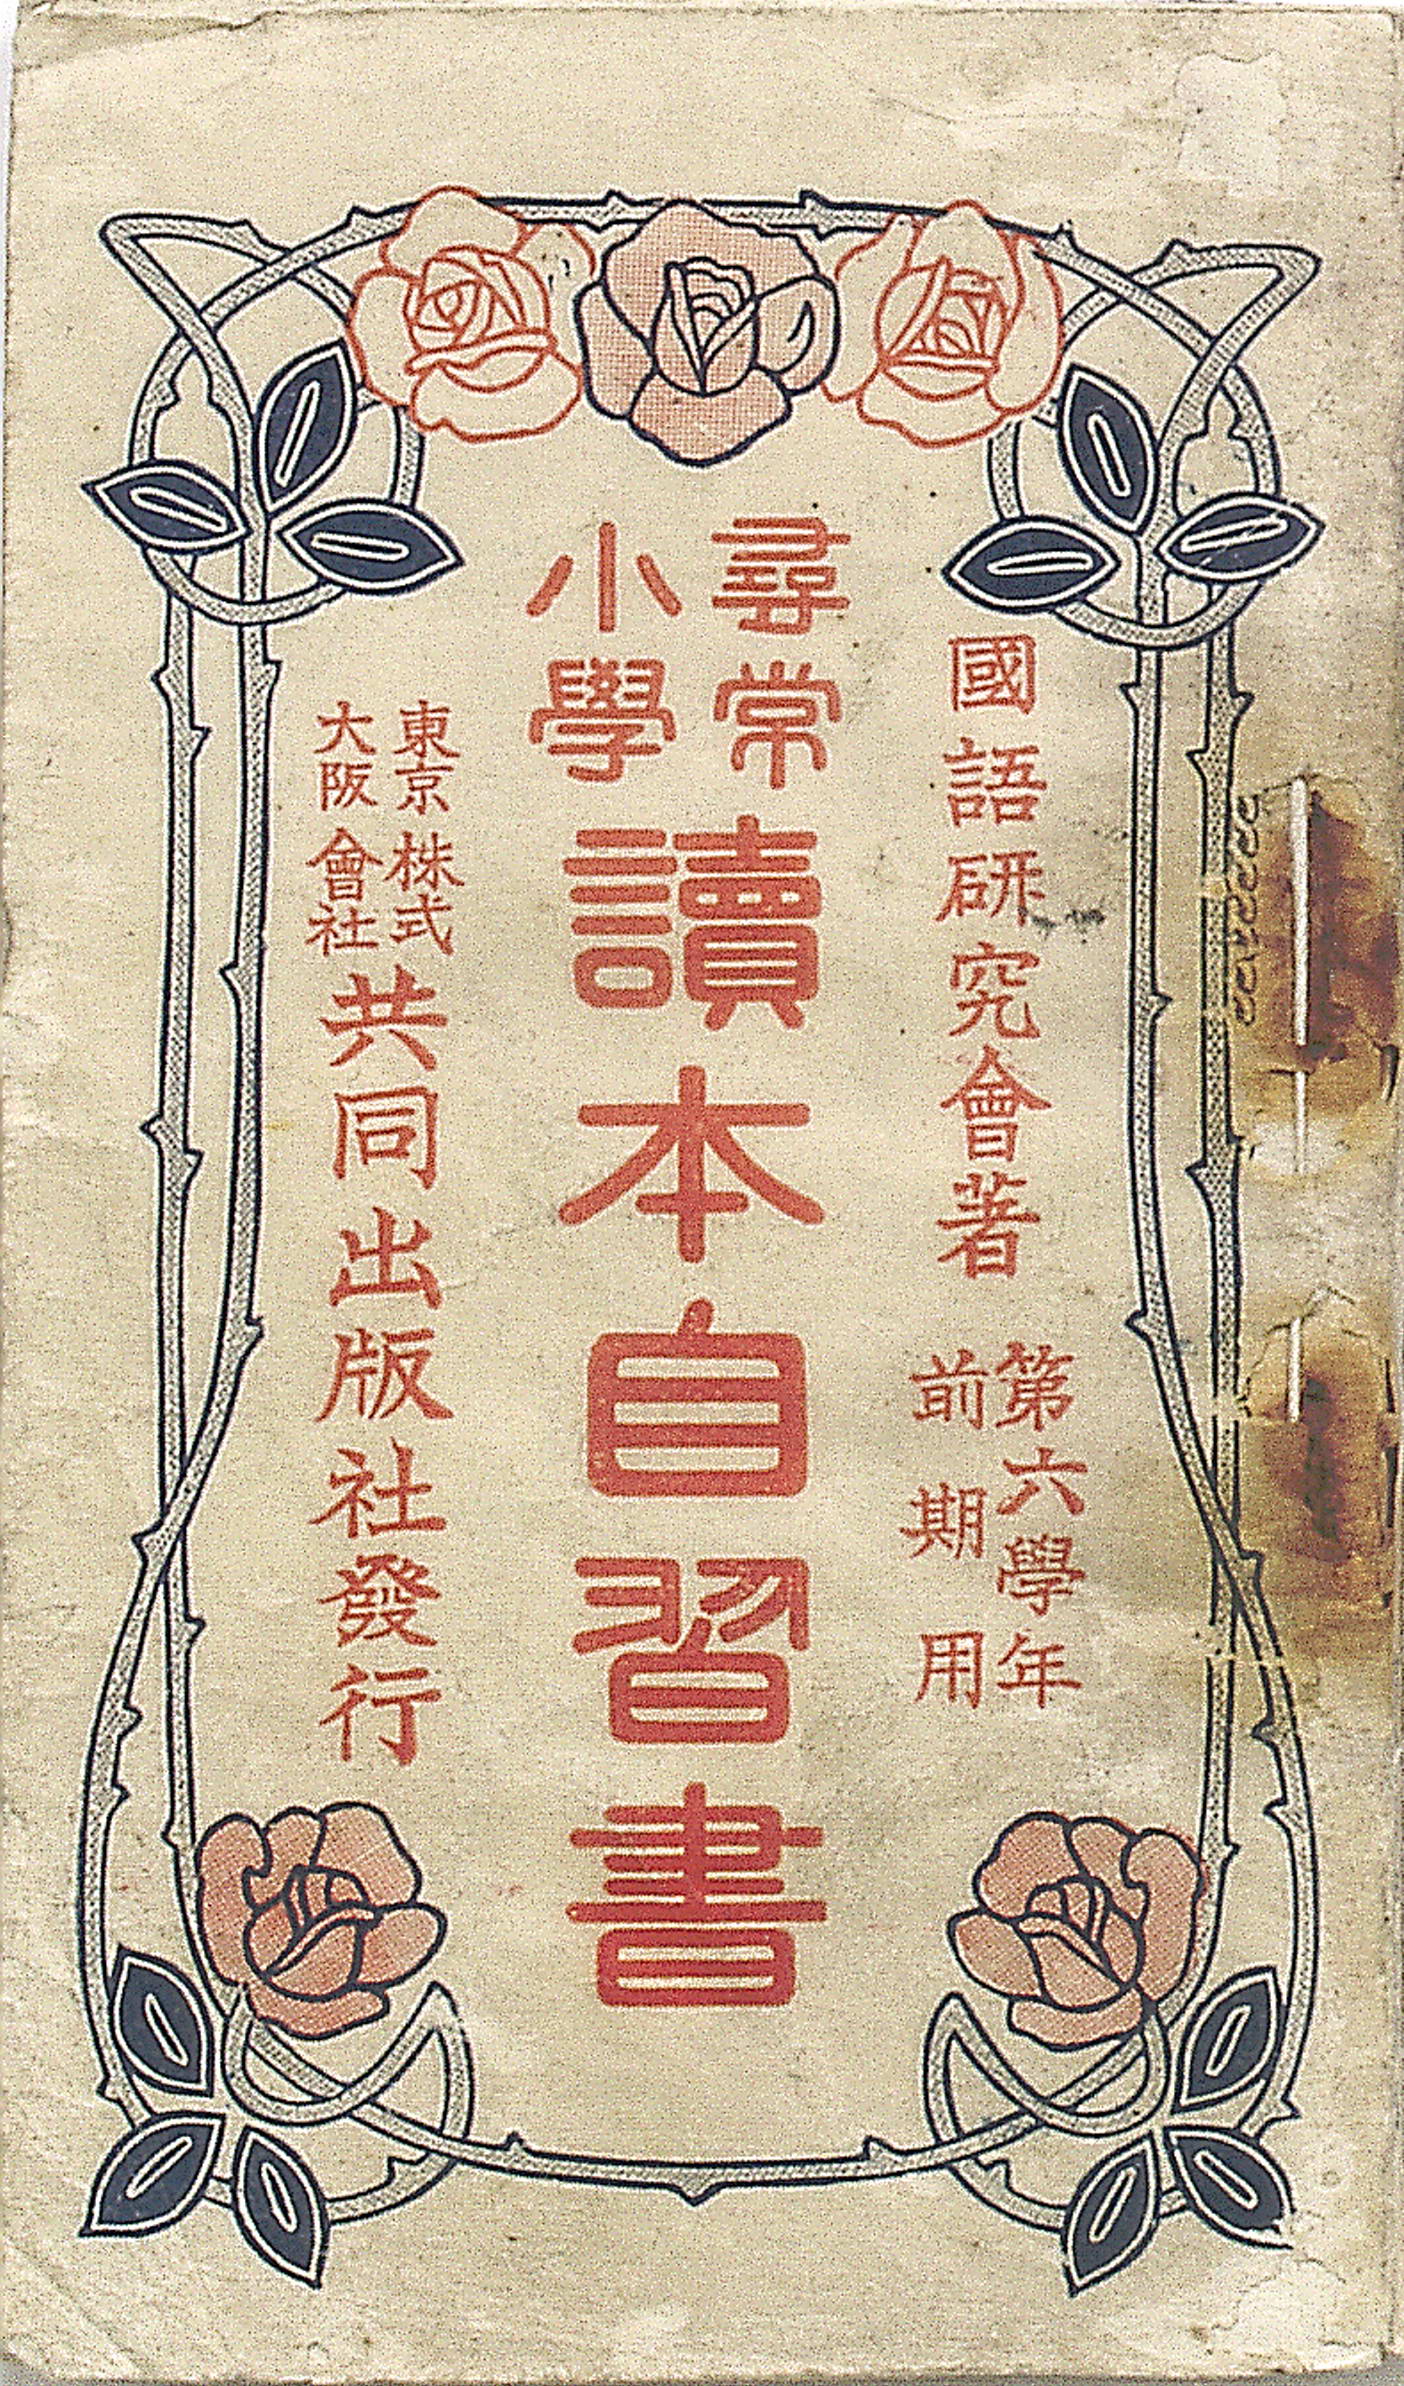 國語研究會著
第六學年
前期用
尋常
小學
讀本自習書
東京
大阪
株式
會社
共同出版社發行